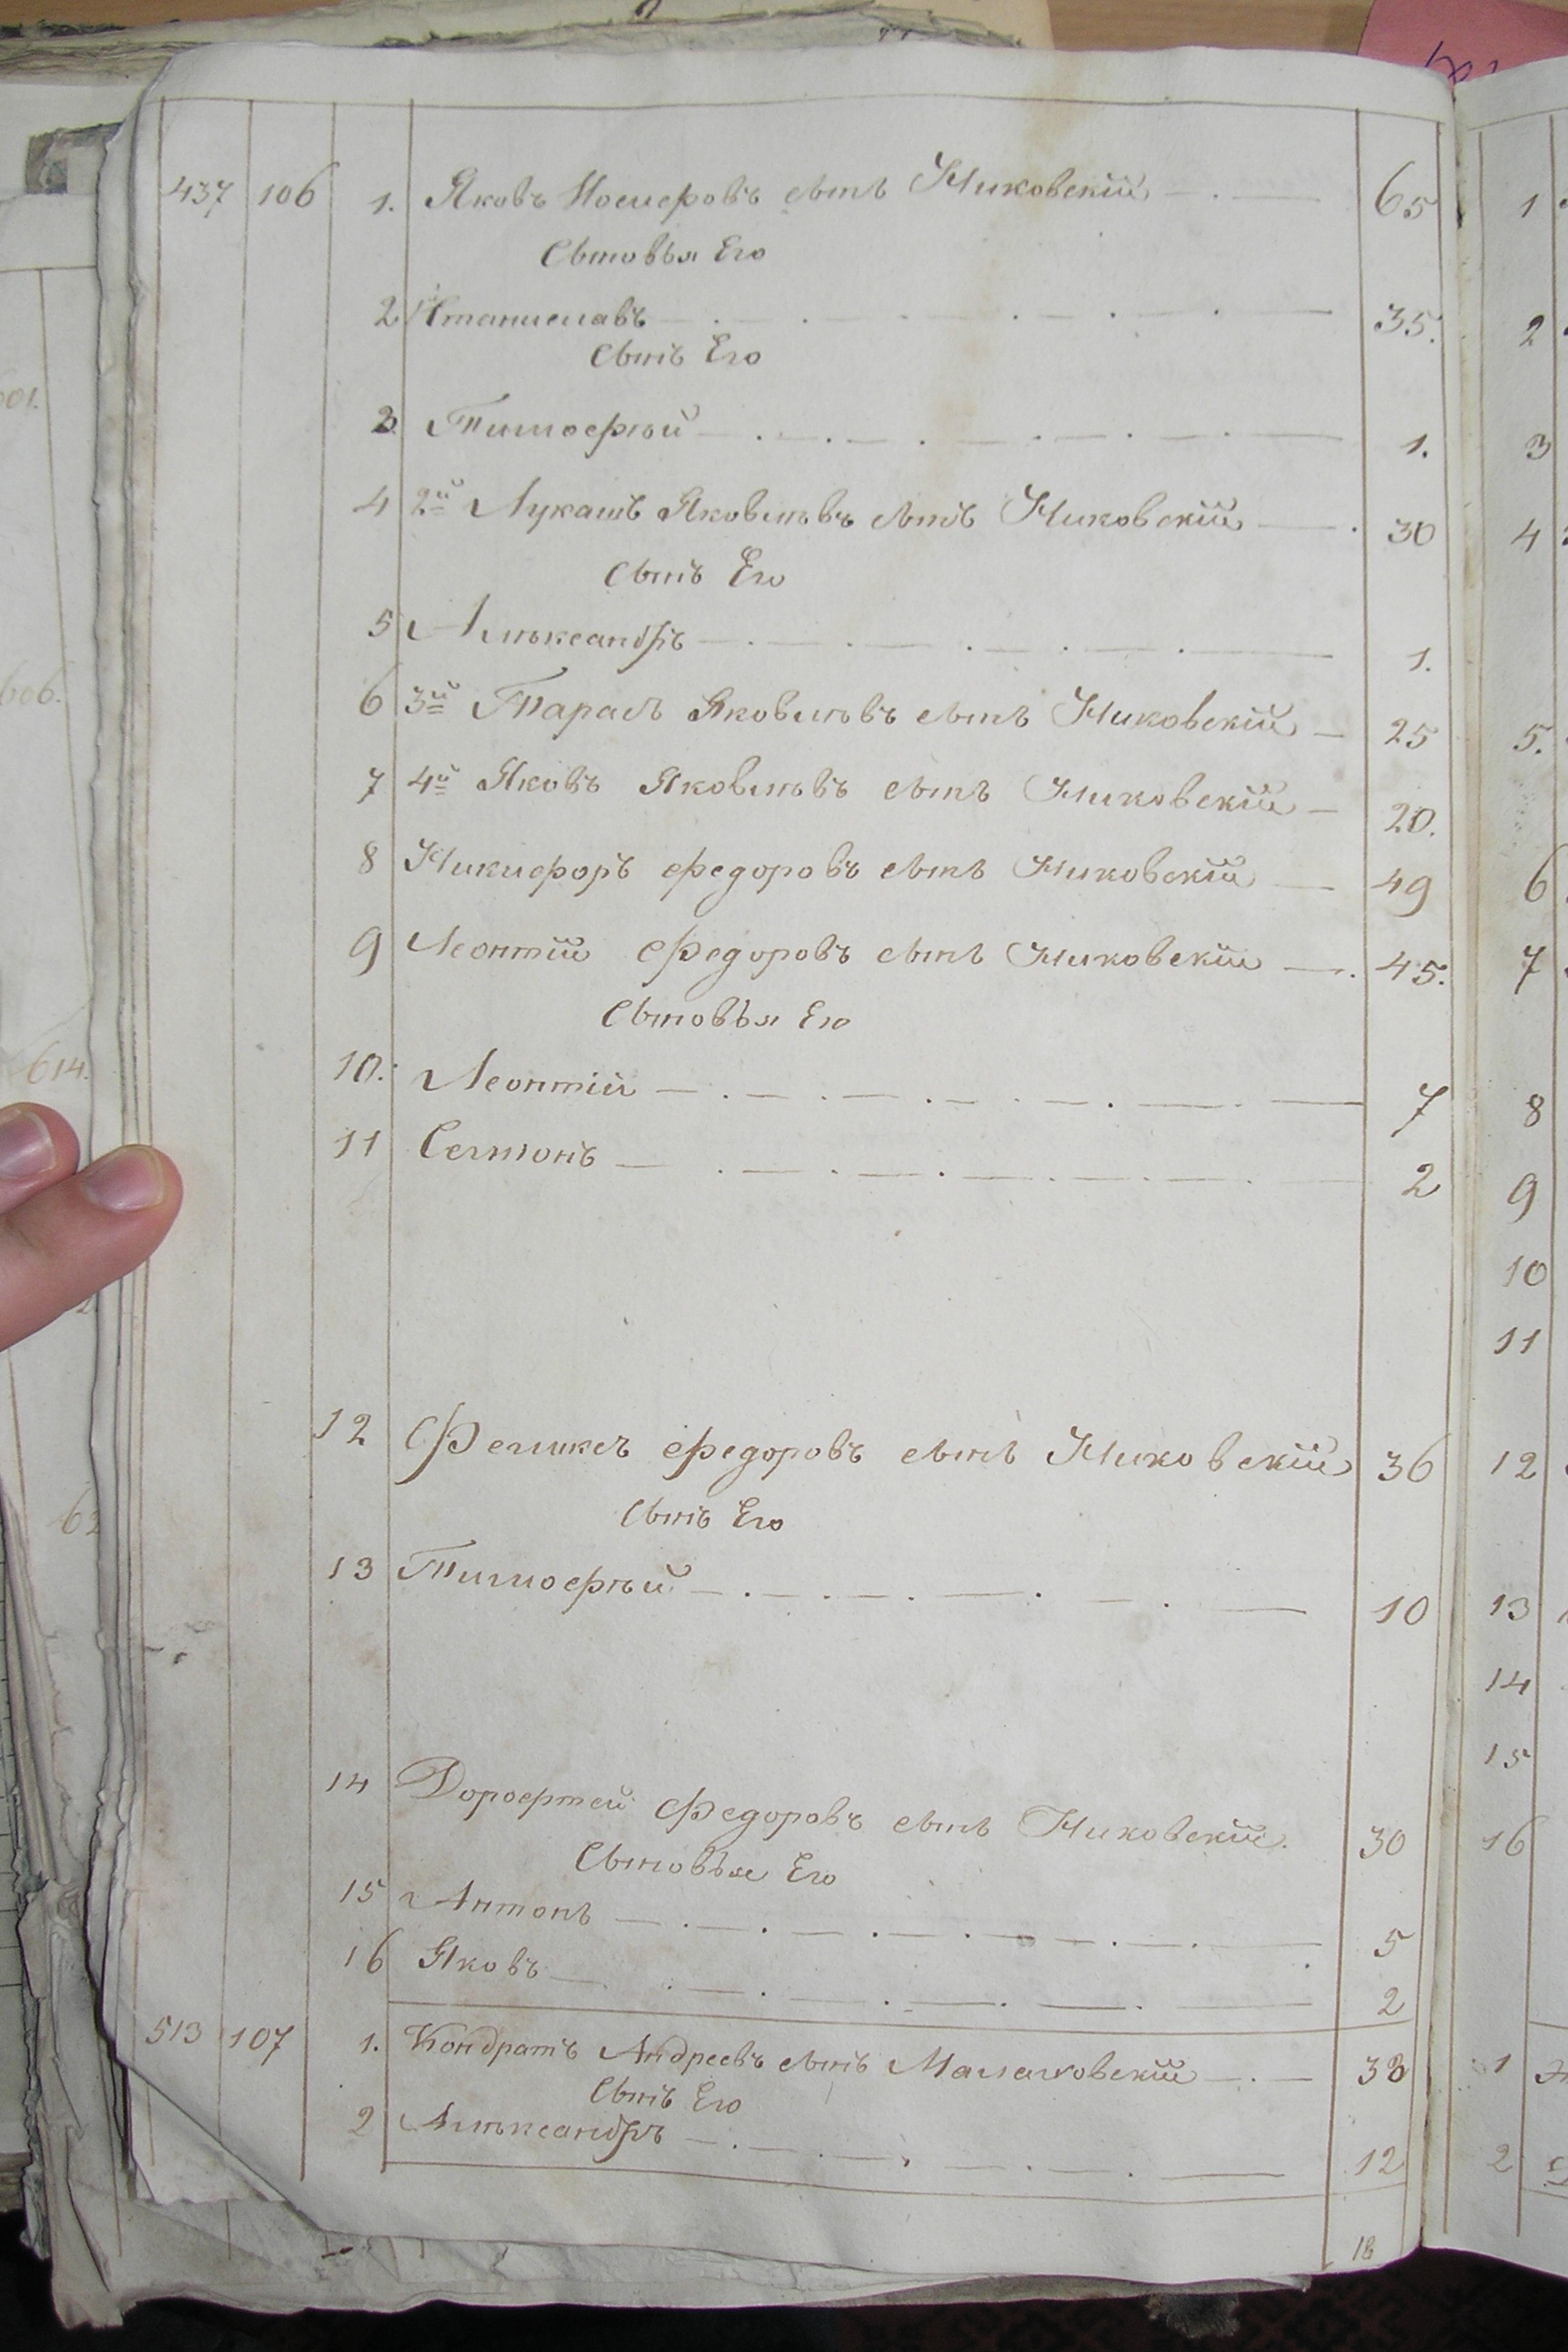 437 106 1. Яковъ сынъ Никовскій 65
Сыновья Его
2 1й Станиславъ 35.
Сынъ Его
3 Тимофѣй 1.
4 2й Лукашъ Яковлѣвъ сынъ Никовскій 30
Сынъ Его
5 Алѣксандръ 1.
6 3й Тарасъ Яковлѣвъ сынъ Никовскій 25
7 4й Яковъ Яковлѣвъ сынъ Никовскій 20.
8 Никифоръ Федоровъ сынъ Никовскій 49
9 Леонтій Федоровъ сынъ Никовскій 45.
Сыновья Его
10. Леонтій 7
11 Семіонъ 2
12 Феликсъ Федоровъ сынъ Никовскій 36
Сынъ Его
13 Тимофѣй 10
14 Дорофтей Федоровъ сынъ Никовскій. 30
Сыновья Его
15 Антонъ 5
16 Яковъ 2
513 107 1. Кондратъ Андреевъ сынъ 38
Сынъ Его
2 Алѣксандръ 12
18
1
2
3
4
5.
6
7
8
9
10
11
12
13
14
15
16
1
2
01.
606.
614.
62